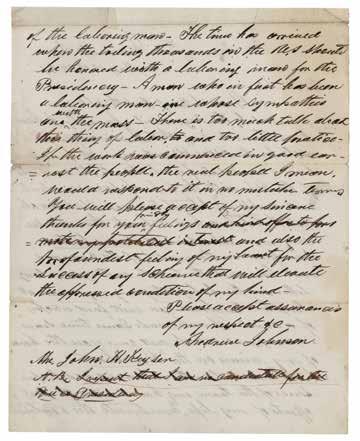 of the laboring man - The time has arrived
when the toiling thousands in the U.S should
be honored with a laboring man for the
Presidency - A man who in fact has been
a laboring man - in whose Sympathies
are with the mass - There is too much talk about
this thing of labor, and too little practice -
If the work were commenced in good ear-
nest the people, the real people I mean,
would respond to it in no mistaken terms
You will please accept of my sincere
thanks for your feelings and kind offer to
interest and also the
profoundest feeling of my heart for the
success of any Scheme that will elevate
the oppressed condition of my kind -
Please accept assurances
of my respect &c -
Andrew Johnson.
Mr John H Keyser
N.B. I am no candidate for the